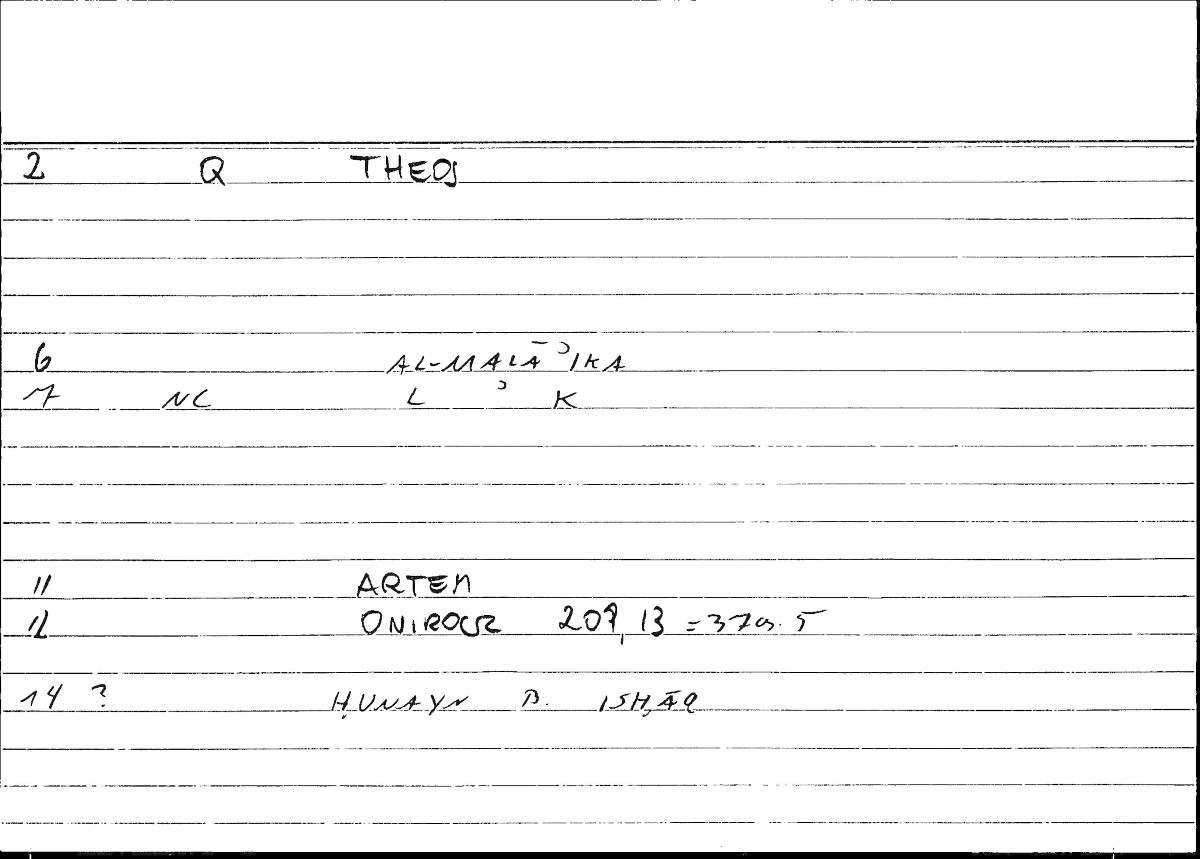 2 Q THEOS
6 AL-MALĀʾIKA
7 NC L ʾ K
11 ARTEM
12 ONIROCR 209,13 = 370.5
14 ? ḤUNAYN B. ISḤĀQ